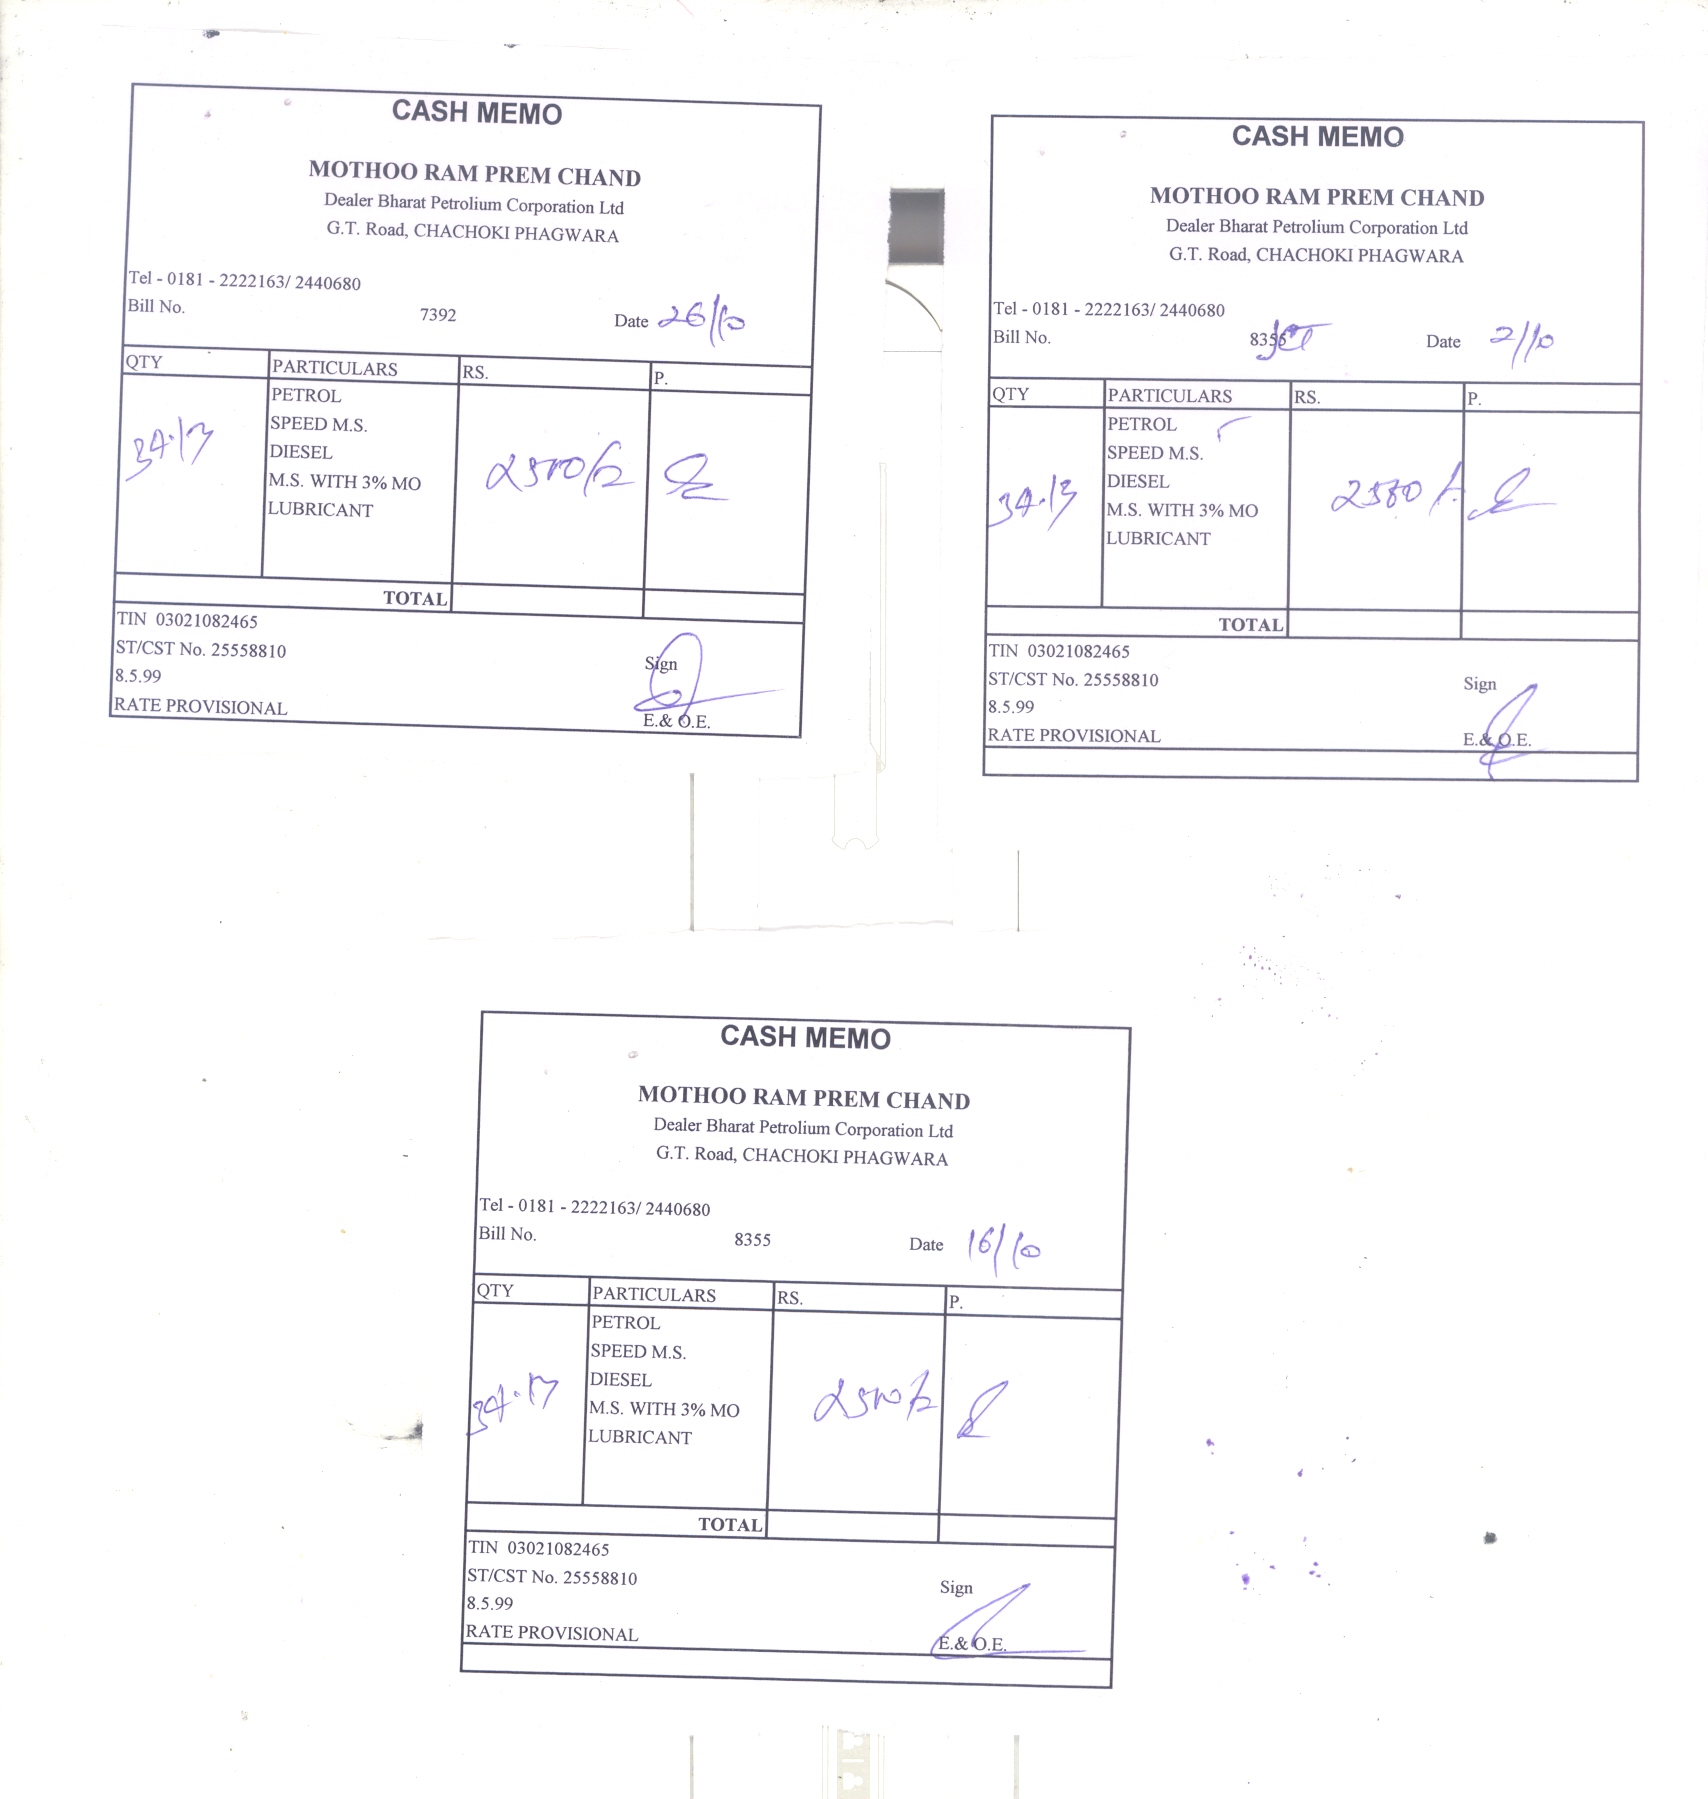 CASH MEMO
MOTHOO RAM PREM CHAND
Dealer Bharat Petrolium Corporation Ltd
G.T. Road, CHACHOKI PHAGWARA
Tel - 0181 - 2222163/ 2440680
Bill No. 7392 Date 26/10
QTY PARTICULARS RS. P.
PETROL
SPEED M.S.
34.13 DIESEL 2500/-
M.S. WITH 3% MO
LUBRICANT
TOTAL
TIN 03021082465
ST/CST No. 25558810
Sign
8.5.99
RATE PROVISIONAL E.& O.E.
CASH MEMO
MOTHOO RAM PREM CHAND
Dealer Bharat Petrolium Corporation Ltd
G.T. Road, CHACHOKI PHAGWARA
Tel - 0181 - 2222163/ 2440680
Bill No. Date 2/10
QTY PARTICULARS RS. P.
PETROL
SPEED M.S.
DIESEL
34.13 M.S. WITH 3% MO
LUBRICANT
TOTAL
TIN 03021082465
ST/CST No. 25558810 Sign
8.5.99
RATE PROVISIONAL E.& O.E.
CASH MEMO
MOTHOO RAM PREM CHAND
Dealer Bharat Petrolium Corporation Ltd
G.T. Road, CHACHOKI PHAGWARA
Tel - 0181 - 2222163/ 2440680
Bill No. 8355 Date 16/10
QTY PARTICULARS RS. P.
PETROL
SPEED M.S.
DIESEL
34.13 M.S. WITH 3% MO 2500/-
LUBRICANT
TOTAL
TIN 03021082465
ST/CST No. 25558810 Sign
8.5.99
RATE PROVISIONAL E.& O.E.